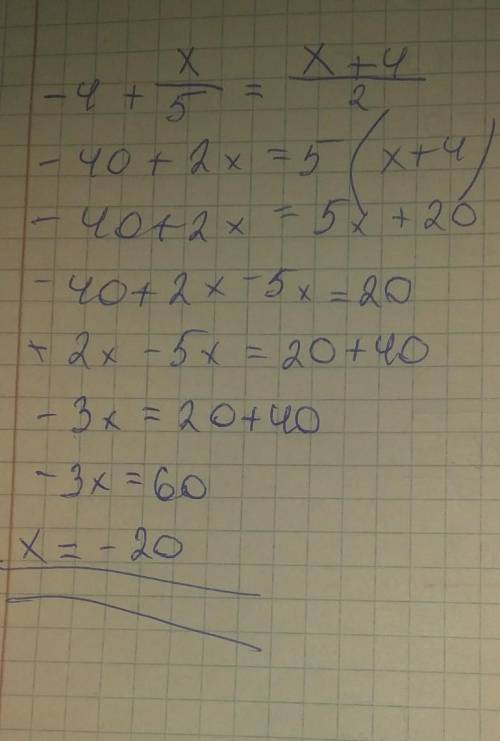 -4 + x/5 = x+4/2
-40+2x=5(x+4)
-40+2x=5x+20
-40+2x-5x=20
+2x-5x=20+40
-3x=20+40
-3x=60
x=-20